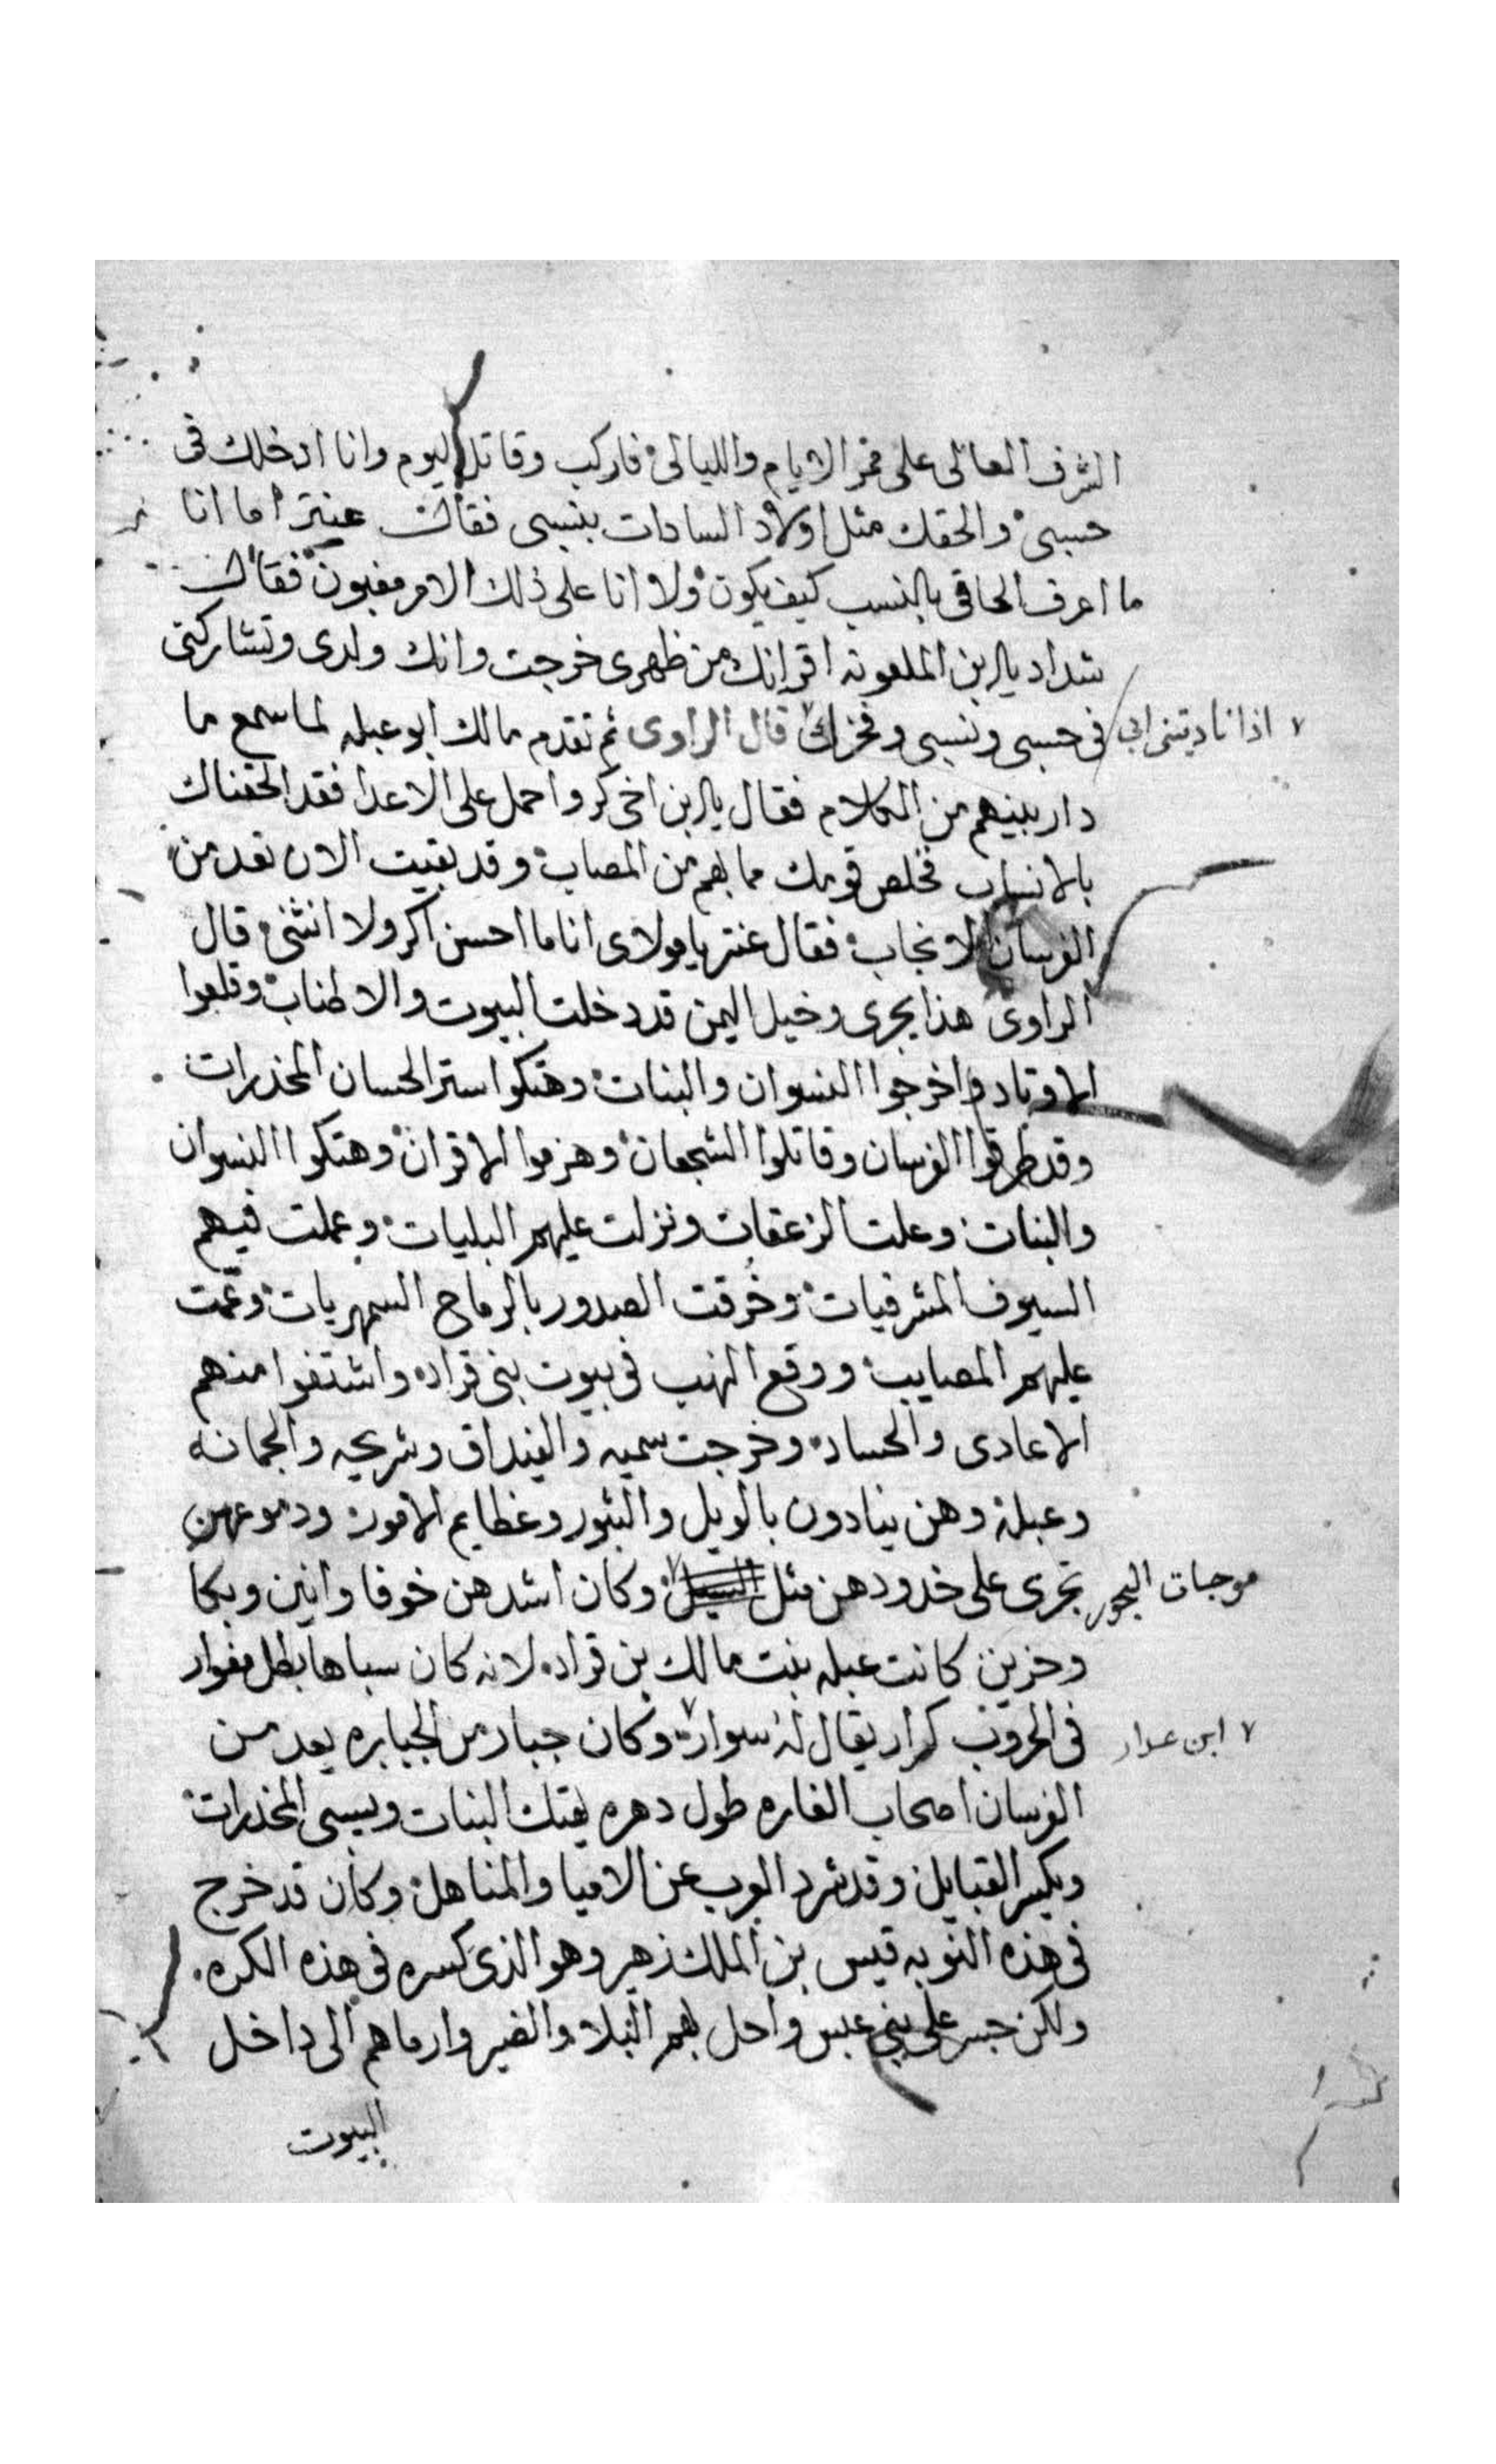 الشرف العالى على ممر الايام والليالى فاركب وقاتل اليوم وانا ادخلك فى
حسبى والحقك مثل اولاد السادات بنسبى فقال عنتر اما انا
ما اعرف الحاقى بالنسب كيف يكون ولا انا على ذلك الامر مغبون فقال
شداد يا ابن الملعونه اقر انك من ظهرى خرجت وانك ولدى وتشاركنى
فى حسبى ونسبى وفخرك قال الراوى ثم تقدم مالك ابو عبله لما سمع ما
اذا ناديتنى ابى
دار بينهم من الكلام فقال يا ابن اخى كر واحمل على الاعدا فقد الحقناك
بالانساب فخلص قومك مما بهم من المصاب وقد بقيت الان تعد من
الفرسان الانجاب فقال عنتر يا مولاى انا ما احسن اكر ولا انثنى قال
الراوى هذا يجرى وخيل اليمن قد دخلت البيوت والاطناب وقلعوا
الاوتاد واخرجوا النسوان والبنات وهتكوا ستر الحسان المخدرات
وقد طرقوا الفرسان وقاتلوا الشجعان وهزموا الاقران وهتكوا النسوان
والبنات وعلت الزعقات ونزلت عليهم البليات وعملت فيهم
السيوف المشرفيات وخرقت الصدور بالرماح السمهريات وعمت
عليهم المصايب ووقع النهب فى بيوت بنى قراد واشتفوا منهم
الاعادى والحساد وخرجت سميه والغيداق وشريحه والجمانه
وعبله وهن ينادون بالويل والثبور وعظايم الامور ودموعهن
تجرى على خدودهن مثل السيل وكان اشدهن خوفا وانين وبكا
موجات البحور
وحزين كانت عبله بنت مالك بن قراد لانه كان سباها بطل مغوار
فى الحروب كرار يقال له سوار وكان جبار من الجبابره يعد من
ابن عدار
الفرسان اصحاب الغاره طول دهره يهتك البنات ويسبى المخدرات
ويكسر القبايل وقد شرد العرب عن الاميا والمناهل وكان قد خرج
فى هذه النوبه قيس بن الملك زهير وهو الذى كسره فى هذه الكره
ولكن جسر على بنى عبس واحل بهم البلاء والضير وارماهم الى داخل
البيوت